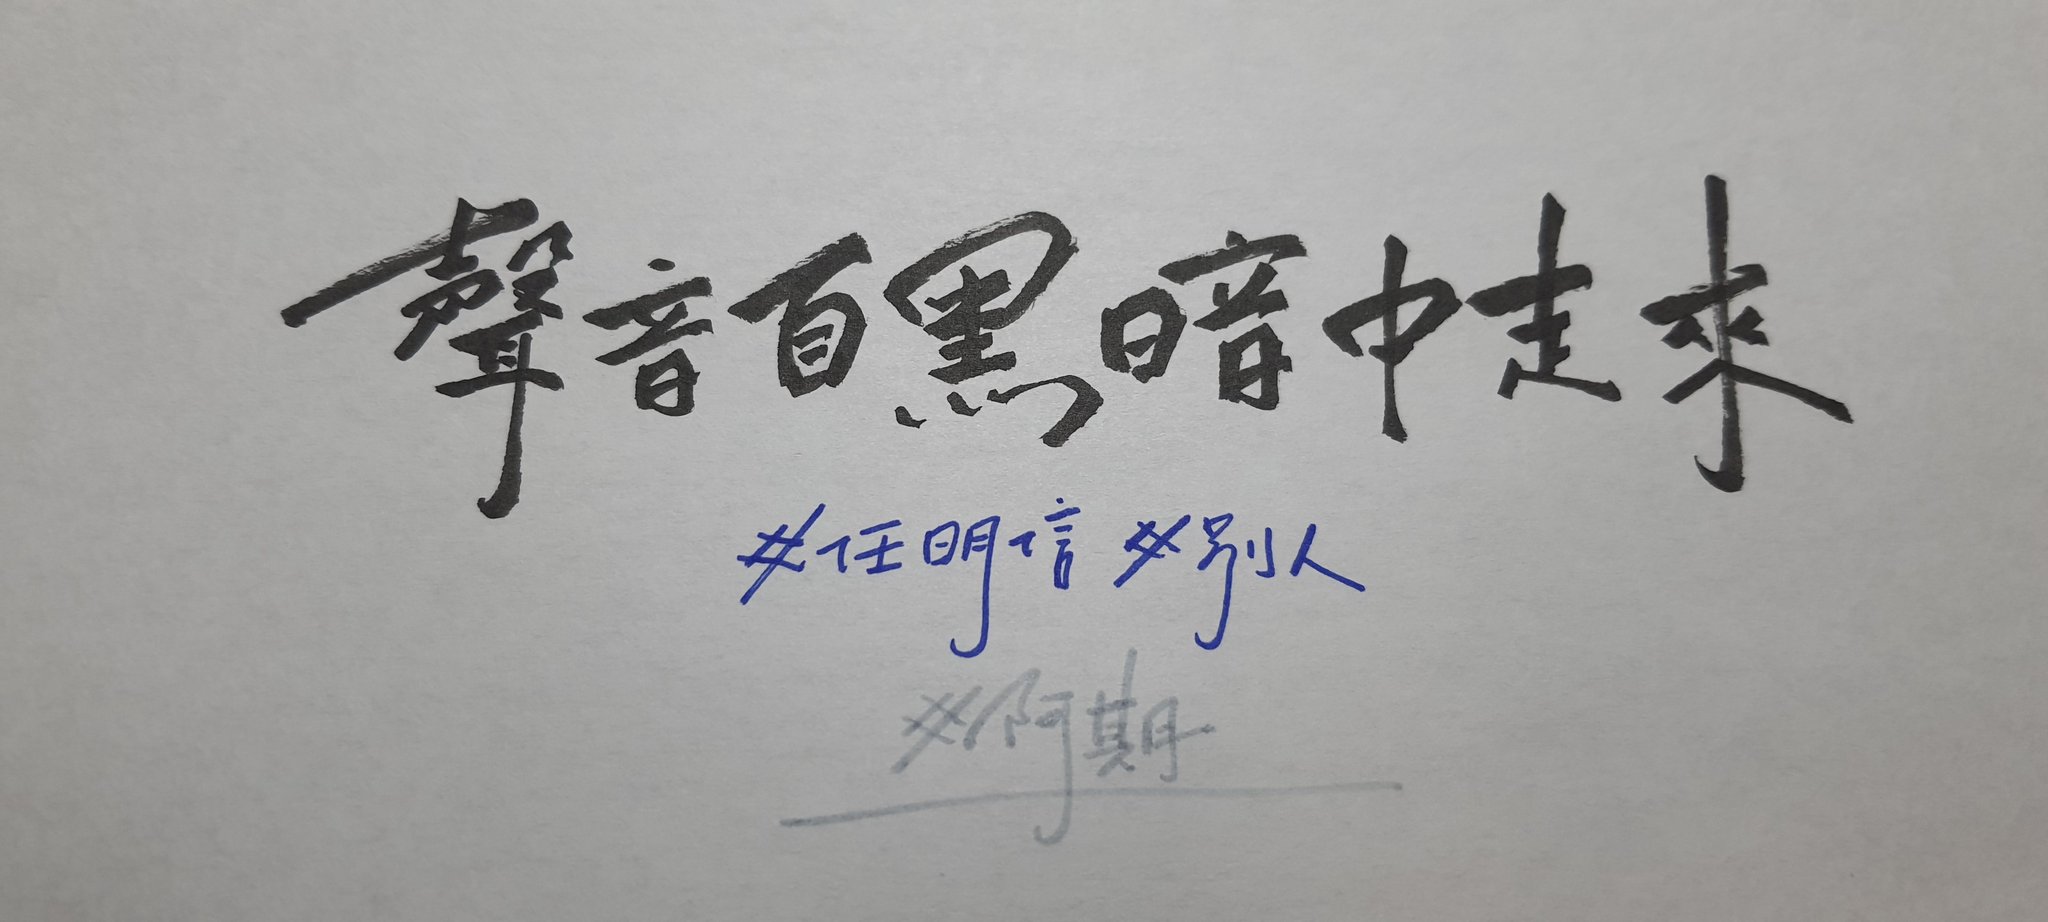 聲音自黑暗中走來
#任明信 #別人
#阿期